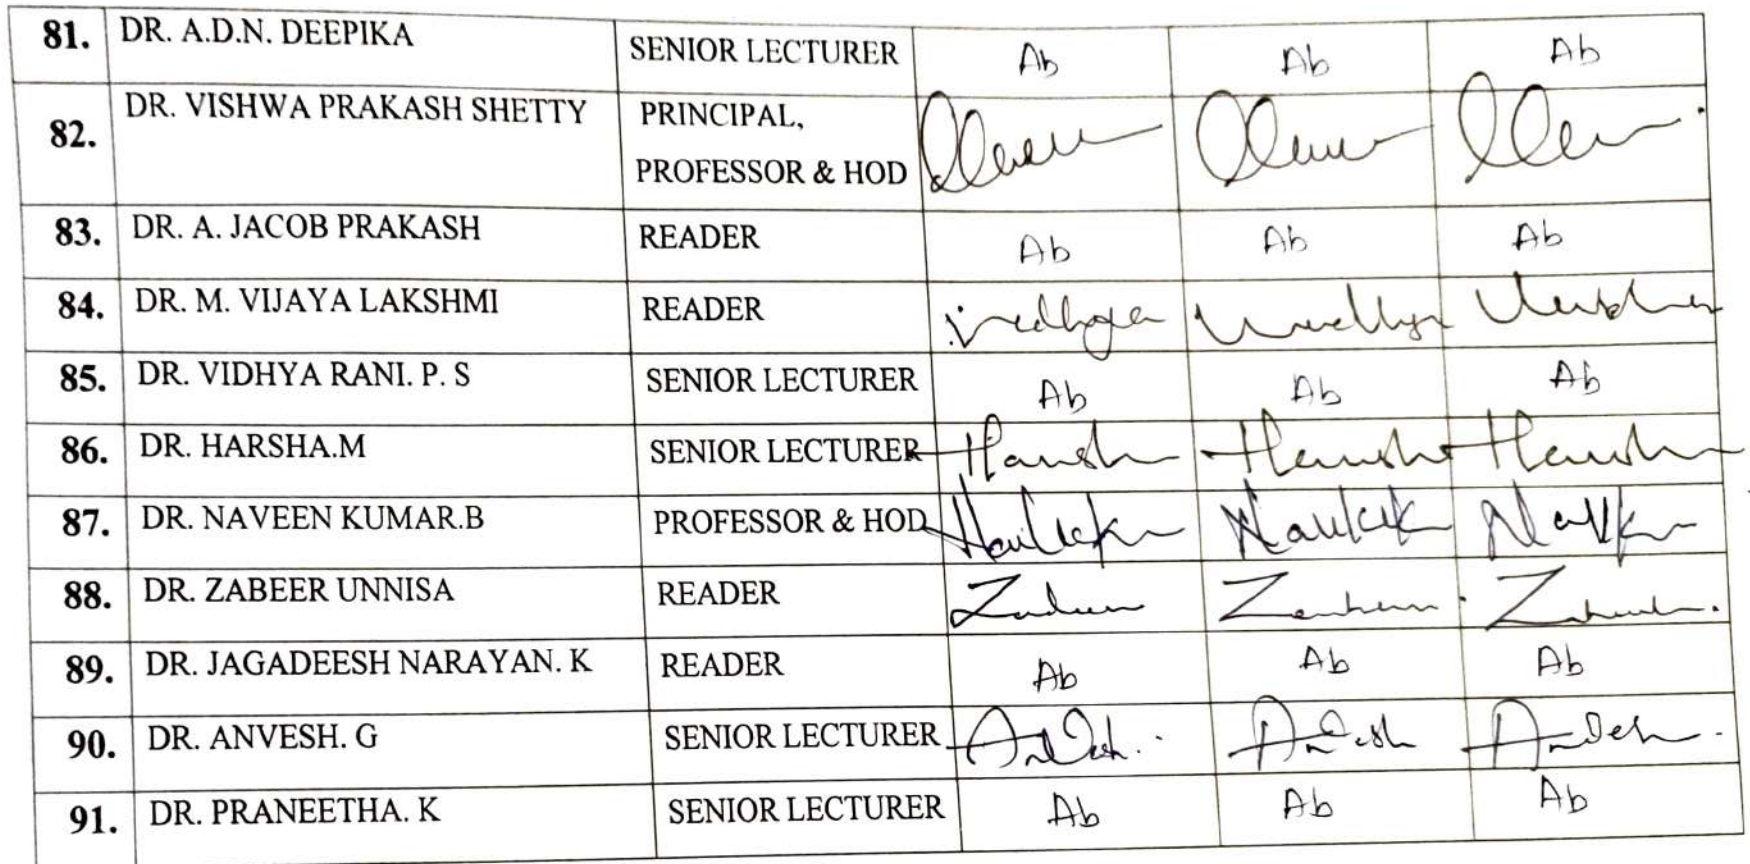 81. DR. A.D.N. DEEPIKA SENIOR LECTURER Ab Ab Ab
82. DR. VISHWA PRAKASH SHETTY PRINCIPAL,
PROFESSOR & HOD
83. DR. A. JACOB PRAKASH READER Ab Ab Ab
84. DR. M. VIJAYA LAKSHMI READER
85. DR. VIDHYA RANI. P. S SENIOR LECTURER Ab Ab Ab
86. DR. HARSHA.M SENIOR LECTURER Harsh Harsh Harsh
87. DR. NAVEEN KUMAR.B PROFESSOR & HOD
88. DR. ZABEER UNNISA READER
89. DR. JAGADEESH NARAYAN. K READER Ab Ab Ab
90. DR. ANVESH. G SENIOR LECTURER Anvesh. Anvesh Anvesh.
91. DR. PRANEETHA. K SENIOR LECTURER Ab Ab Ab